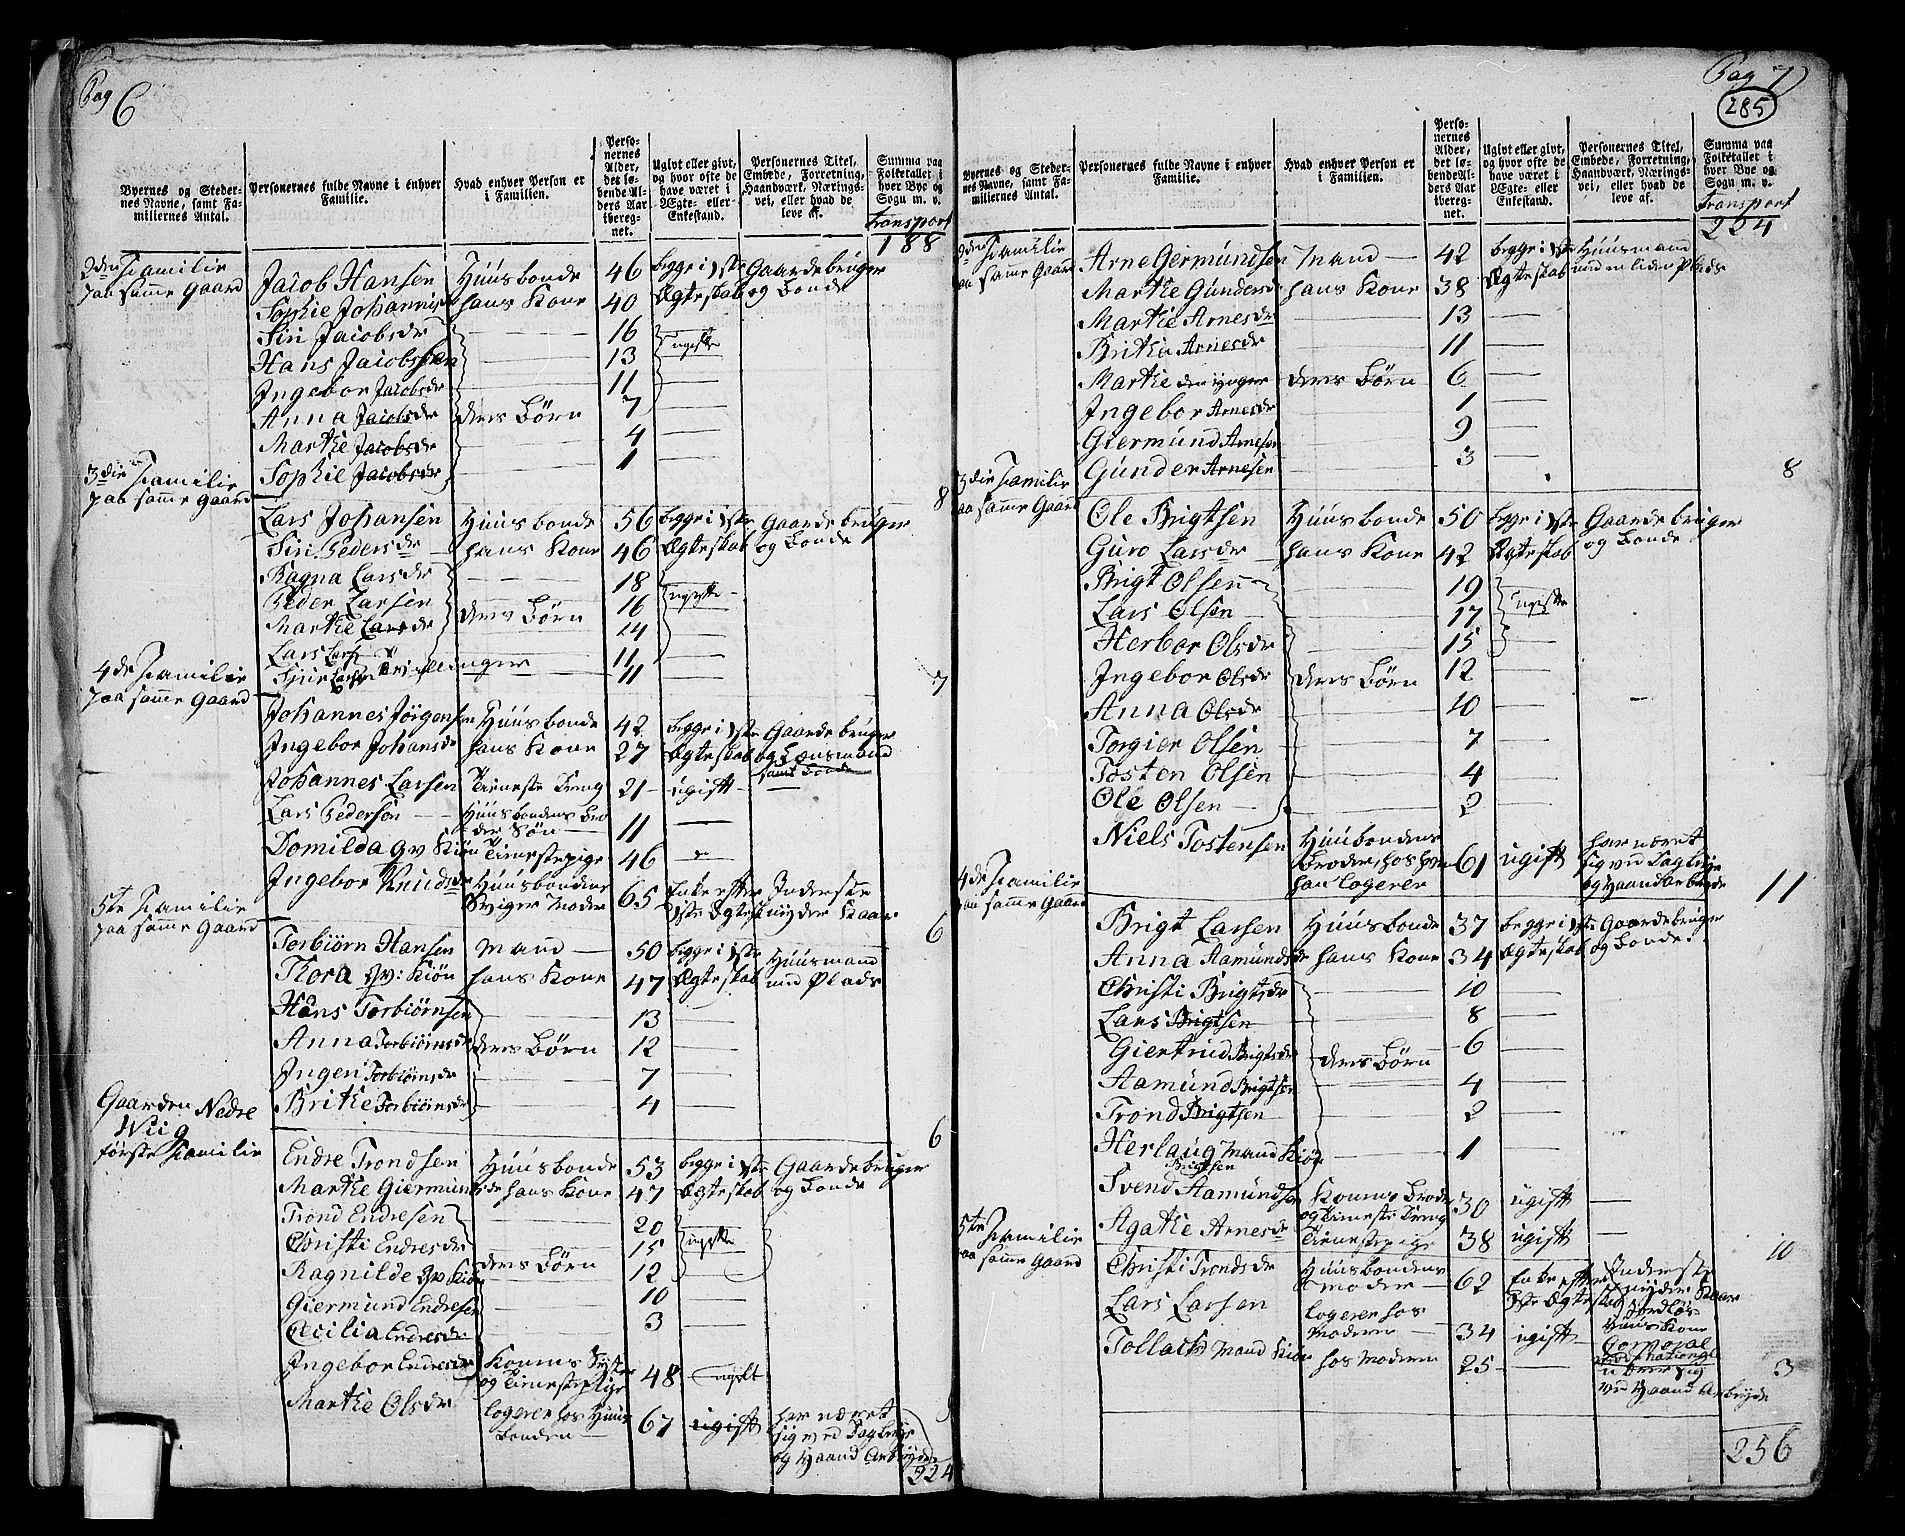 Pag 6
Byernes og Steder-
nes Navne, samt Fa-
miliernes Antal.
Personernes fulde Navne i enhver
Familie.
Hvad enhver Person er
i Familien.
Perso-
nernes
Alder,
det lø-
bende Al-
ders Aar
iberegnet.
Ugivt eller givt,
og hvor ofte de
have været i
Ægte- eller
Enkestand.
Personernes Titel,
Embede, Forretning,
Haandværk, Nærings-
vei, eller hvad de
leve af.
Summa paa
Folketallet i
hver Bye og
Sogn m. v.
Transport
188
2den Familie
paa samme Gaard
Jacob Hansen Huusbonde 46 begge i 1ste Gaardebruger
Sophie Johannisd hans Kone 40 Ægteskab og Bonde
Siri Jacobsdr 16 ugifte
Hans Jacobssen 13
Ingebor Jacobsdr 11
Anna Jacobsdr deres Børn 7
Marthe Jacobsdr 4
Sophie Jacobsdr 1
8
3die Familie
paa samme Gaard
Lars Johansen Huusbonde 56 begge i 1ste Gaardebruger
Siri Pedersdr hans Kone 46 Ægteskab og Bonde
Ragna Larsdr 18 ugifte
Peder Larsen 16
Marthe Larsdr deres Børn 14
Lars Larsen 11
Siur Larsen Tvillinger 11
7
4de Familie
paa samme Gaard
Johannes Jörgensen Huusbonde 42 begge i 1ste Gaardebruger
Ingebor Johansdr hans Kone 27 Ægteskab og Lænsmand
samt Bonde
Johannes Larsen Tieneste Dreng 21 ugift
Lars Pedersen Huusbondens Bro-
der Søn 11
Domilda Qv Kiön Tienestepige 46
Ingebor Knudsdr Huusbondens
Sviger Moder 65 Enke efter Inderste
1ste Ægtesk nyder Kaar
6
5te Familie
paa samme Gaard
Torbiörn Hansen Mand 50 begge i 1ste Huusmand
Thora Qv: Kiön hans Kone 47 Ægteskab med Plads
Hans Torbiörnsen 13
Anna Torbiörnsdr deres Børn 12
Ingeri Torbiörnsdr 7
Brithe Torbiörnsdr 4
6
Gaarden Nedre
Wiig
første Familie
Endre Trondsen Huusbonde 53 begge i 1ste Gaardebruger
Marthe Giermundsdr hans Kone 47 Ægteskab og Bonde
Trond Endresen 20 ugifte
Christi Endresdr 15
Ragnilde Qv. Kiön deres Børn 12
Giermund Endresen 10
Cecilia Endresdr 3
Ingebor Endresdr Konens Syster
og Tienestepige 48 ugift
Marthe Olsdr logerer hos Huus-
bonden 67 ugift har næret
sig ved Dagleye
og Haand Arbeyde
9
224
Pag 7
285
Byernes og Steder-
nes Navne, samt Fa-
miliernes Antal.
Personernes fulde Navne i enhver
Familie.
Hvad enhver Person er
i Familien.
Perso-
nernes
Alder,
det lø-
bende Al-
ders Aar
iberegnet.
Ugivt eller givt,
og hvor ofte de
have været i
Ægte- eller
Enkestand.
Personernes Titel,
Embede, Forretning,
Haandværk, Nærings-
vei, eller hvad de
leve af.
Summa paa
Folketallet i
hver Bye og
Sogn m. v.
Transport
224
2den Familie
paa samme Gaard
Arne Germundsen Mand 42 begge i 1ste Huusmand
Marthe Gundersd hans Kone 38 Ægteskab med en liden Plads
Marthe Arnesdr 13
Britha Arnesdr 11
Marthe den yngre deres Børn 6
Ingebor Arnesdr 1
Giermund Arnesen 9
Gunder Arnesen 3
8
3die Familie
paa samme Gaard
Ole Brigtsen Huusbonde 50 begge i 1ste Gaardebruger
Guro Larsdr hans Kone 42 Ægteskab og Bonde
Brigt Olsen 19 ugifte
Lars Olsen 17
Herbor Olsdr 15
Ingebor Olsdr deres Børn 12
Anna Olsdr 10
Torgier Olsen 7
Tosten Olsen 4
Ole Olsen 2
Niels Tostensen Huusbondens
Broder, hos hvem
han logerer 61 ugift har næret
sig ved Dagleye
og Haand Arbeyde
11
4de Familie
paa samme Gaard
Brigt Larsen Huusbonde 37 begge i 1ste Gaardebruger
Anna Aamundsdr hans Kone 34 Ægteskab og Bonde
Christi Brigtsdr 10
Lars Brigtsen 8
Giertrud Brigtsdr deres Børn 6
Aamund Brigtsen 4
Trond Brigtsen 2
Herlaug Mand Kiön
Brigtsen 1
Svend Aamundsen Konens Broder
og Tieneste Dreng 30 ugift
Agathe Arnesdr Tienestepige 38 ugift
10
5te Familie
paa samme Gaard
Christi Trondsdr Huusbondens
Moder 62 Enke efter Inderste
1ste Ægteskab nyder Kaar
Jordløs
Huus Kone
Lars Larsen logerer hos
Moderen 34 ugift Corporal
ved National
Tollach Mand Kiön hos Moderen 25 nærer sig
ved Haand Arbeyde
3
256